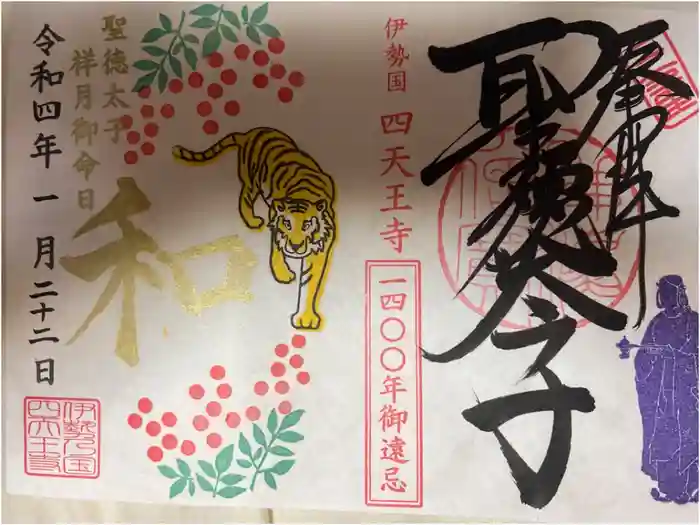 奉拝
聖徳太子
伊勢国 四天王寺
一四〇〇年御遠忌
和
聖徳太子
祥月御命日
令和四年 一月二十二日
伊勢乃国
四天王寺